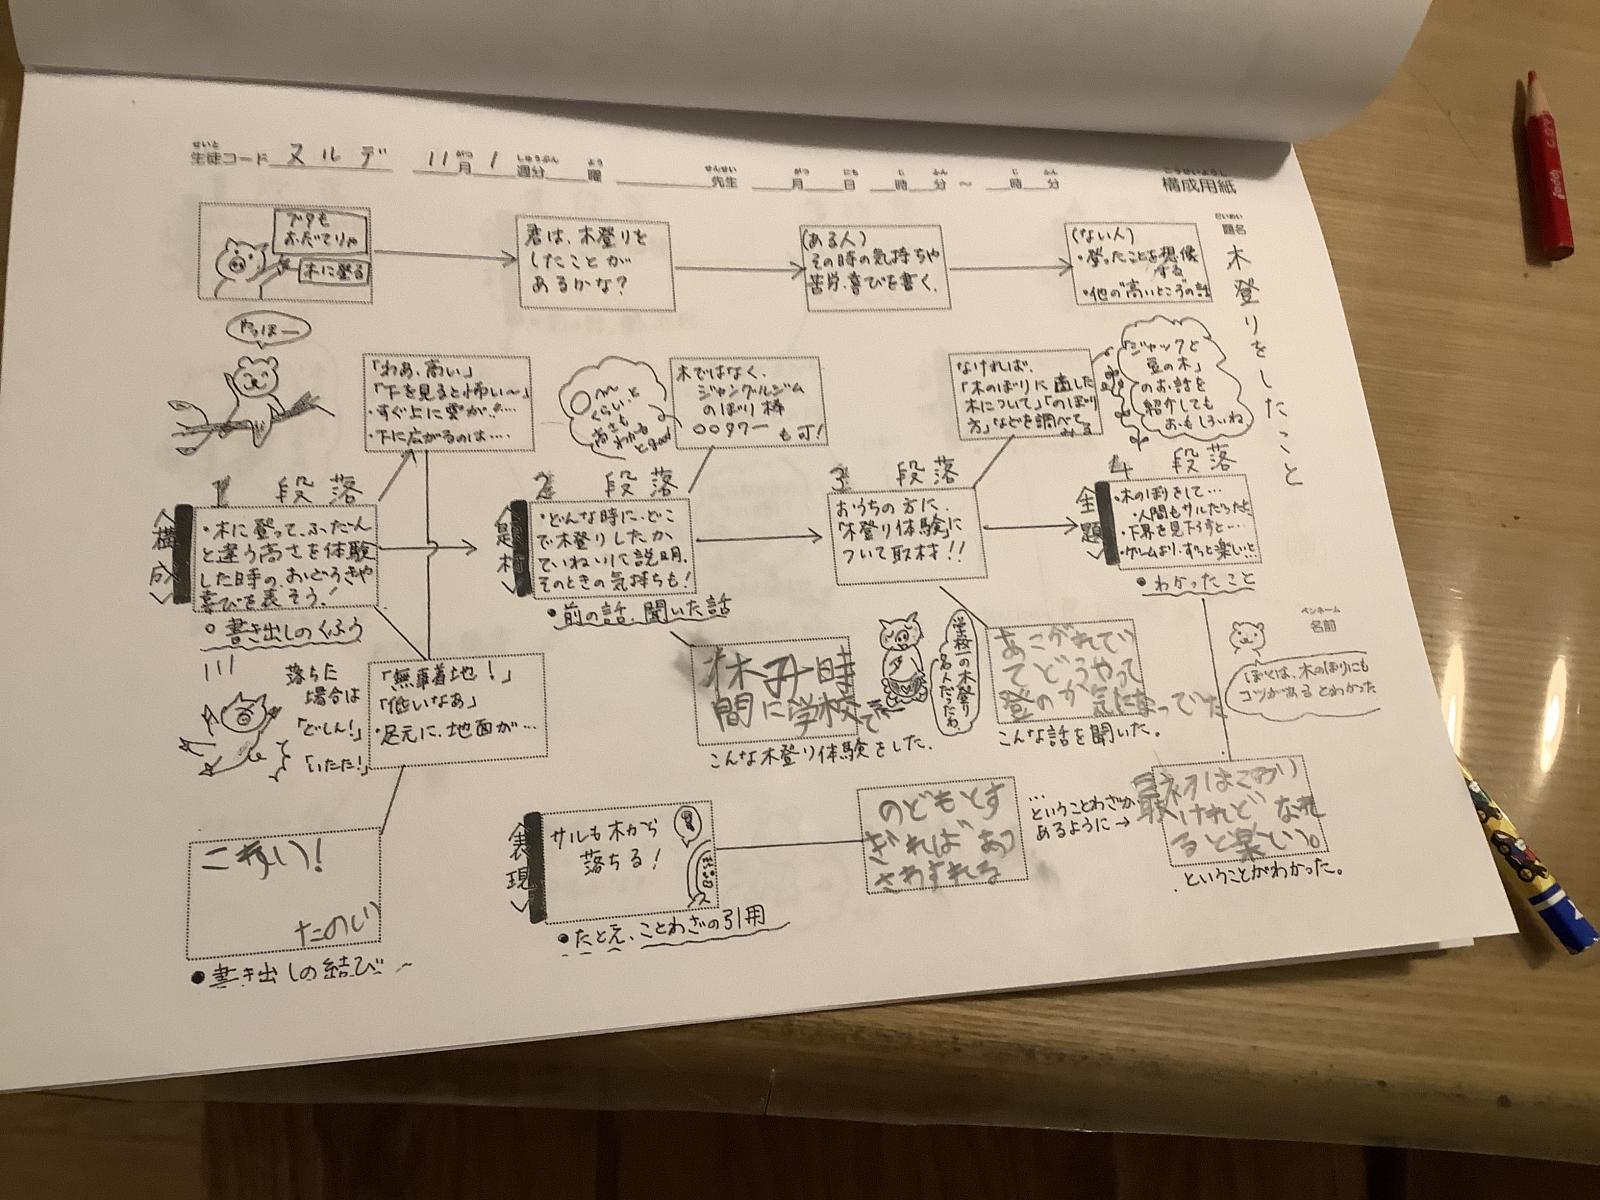 生徒コード ヌルデ 11月 1週分 曜 先生 月 日 時 分 ～ 時 分
構成用紙
題名
木登りをしたこと
ブタも
おだてりゃ
木に登る
君は、木登りを
したことが
あるかな？
(ある人)
その時の気持ちや
苦労、喜びを書く。
(ない人)
・登ったことを想像
する
・他の"高いところ"の話
やっほー
「わぁ、高い」
「下を見ると怖い〜」
・すぐ上に雲が!!…
・下に広がるのは….
〇〜
くらいと
高さも
わかる
とgood
木ではなく、
ジャングルジム
のぼり棒
〇〇タワー
も可！
なければ、
「木のぼりに適した
木について」「のぼり
方」などを調べて
みる
「ジャックと
豆の木」
のお話を
紹介しても
おもしろいね
1 段落
〈構成〉
・木に登って、ふだん
と違う高さを体験
した時の、おどろきや
喜びを表そう！
○ 書き出しのくふう
2 段落
〈題材〉
・どんな時に、どこ
で木登りしたか
ていねいに説明。
そのときの気持ちも！
●前の話、聞いた話
3 段落
おうちの方に、
「木登り体験」に
ついて取材!!
4 段落
〈主題〉
・木のぼりをして…
・人間もサルだったと
・下界を見下ろすと…
・ゲームより、ずっと楽しいと
●わかったこと
落ちた
場合は
「どしん！」
「いたた！」
「無事着地！」
「低いなあ」
・足元に、地面が…
休み時
間に学校で
こんな木登り体験をした。
学校一の木登り
名人だったわ
あこがれてい
てどうやって
登のか気になっていた
こんな話を聞いた。
ペンネーム
名前
ぼくは、木のぼりにも
コツがあるとわかった
こわい！
たのしい
●書き出しの結び〜
〈表現〉
サルも木から
落ちる！
●たとえ、ことわざの引用
のどもとす
ぎればあつ
さわすれる
…
ということわざが
あるように→
最初はこわい
けれど なれ
ると楽しい。
. ということがわかった。